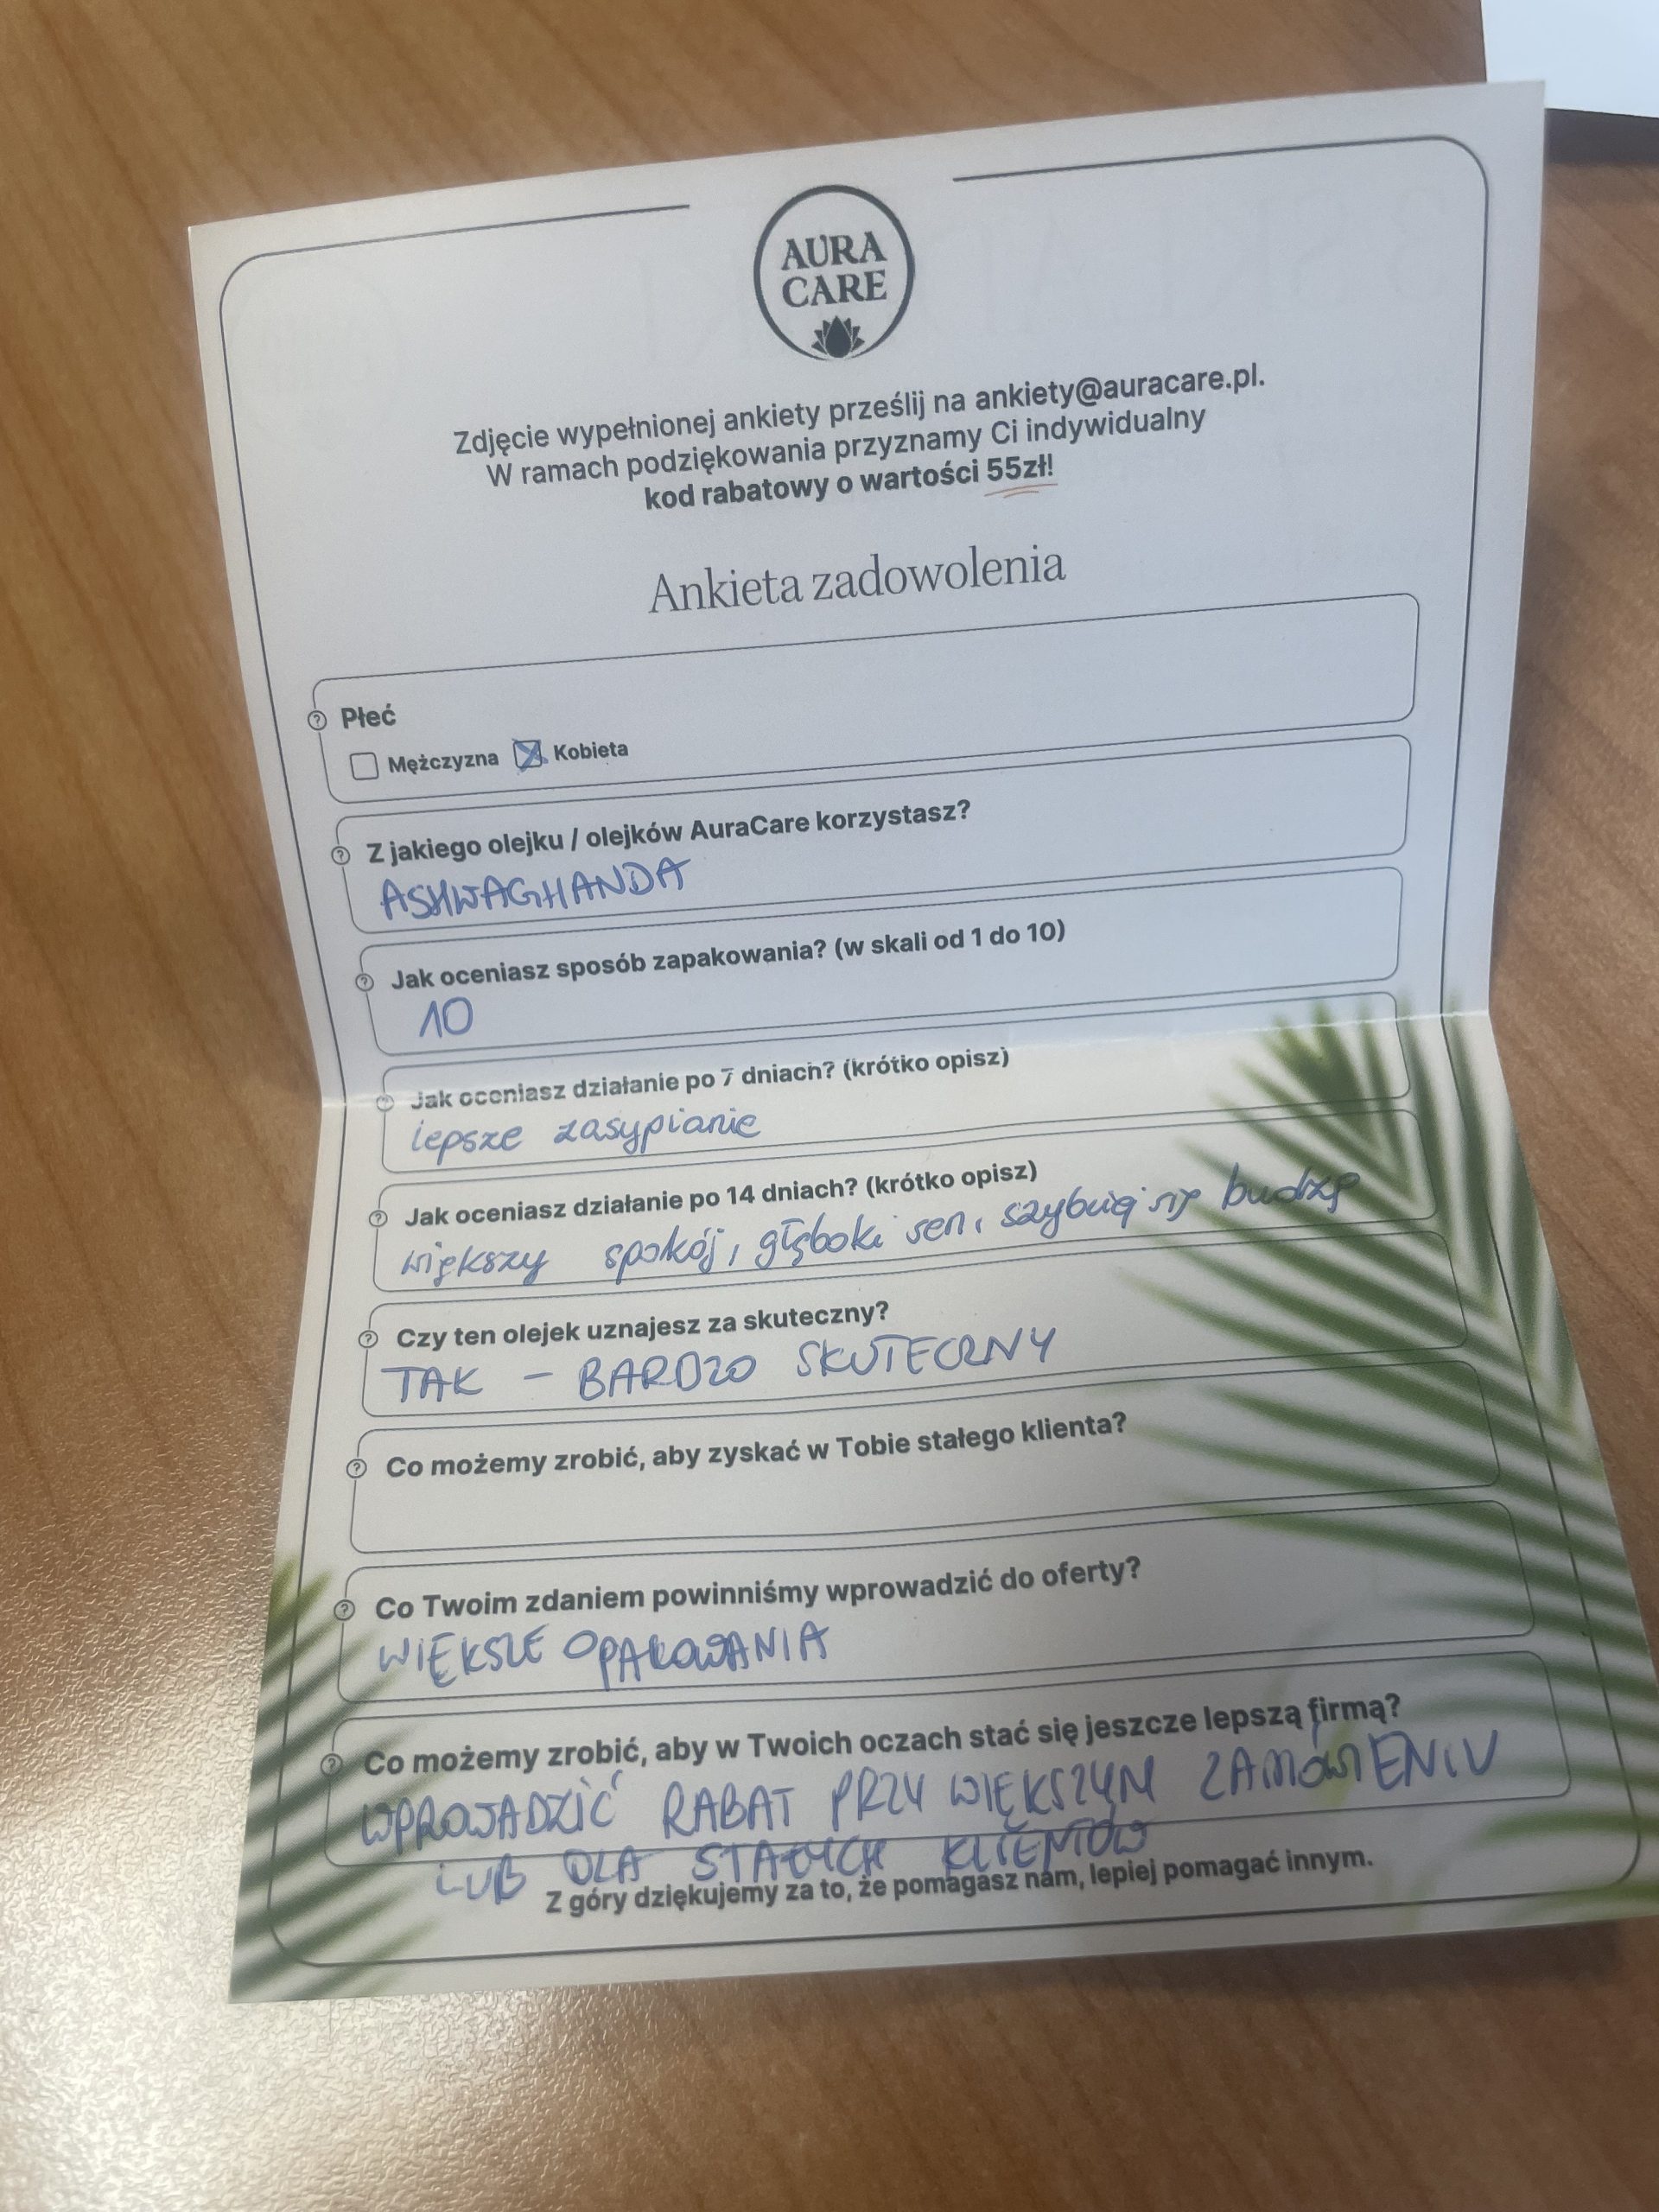 AURA
CARE
Zdjęcie wypełnionej ankiety prześlij na ankiety@auracare.pl.
W ramach podziękowania przyznamy Ci indywidualny
kod rabatowy o wartości 55zł!
Ankieta zadowolenia
Płeć
Mężczyzna Kobieta
Z jakiego olejku / olejków AuraCare korzystasz?
ASHWAGHANDA
Jak oceniasz sposób zapakowania? (w skali od 1 do 10)
10
Jak oceniasz działanie po 7 dniach? (krótko opisz)
lepsze zasypianie
Jak oceniasz działanie po 14 dniach? (krótko opisz)
większy spokój, głęboki sen, szybciej się budzę
Czy ten olejek uznajesz za skuteczny?
TAK - BARDZO SKUTECZNY
Co możemy zrobić, aby zyskać w Tobie stałego klienta?
Co Twoim zdaniem powinniśmy wprowadzić do oferty?
WIĘKSZE OPAKOWANIA
Co możemy zrobić, aby w Twoich oczach stać się jeszcze lepszą firmą?
WPROWADZIĆ RABAT PRZY WIĘKSZYM ZAMÓWIENIU
LUB DLA STAŁYCH KLIENTÓW
Z góry dziękujemy za to, że pomagasz nam, lepiej pomagać innym.